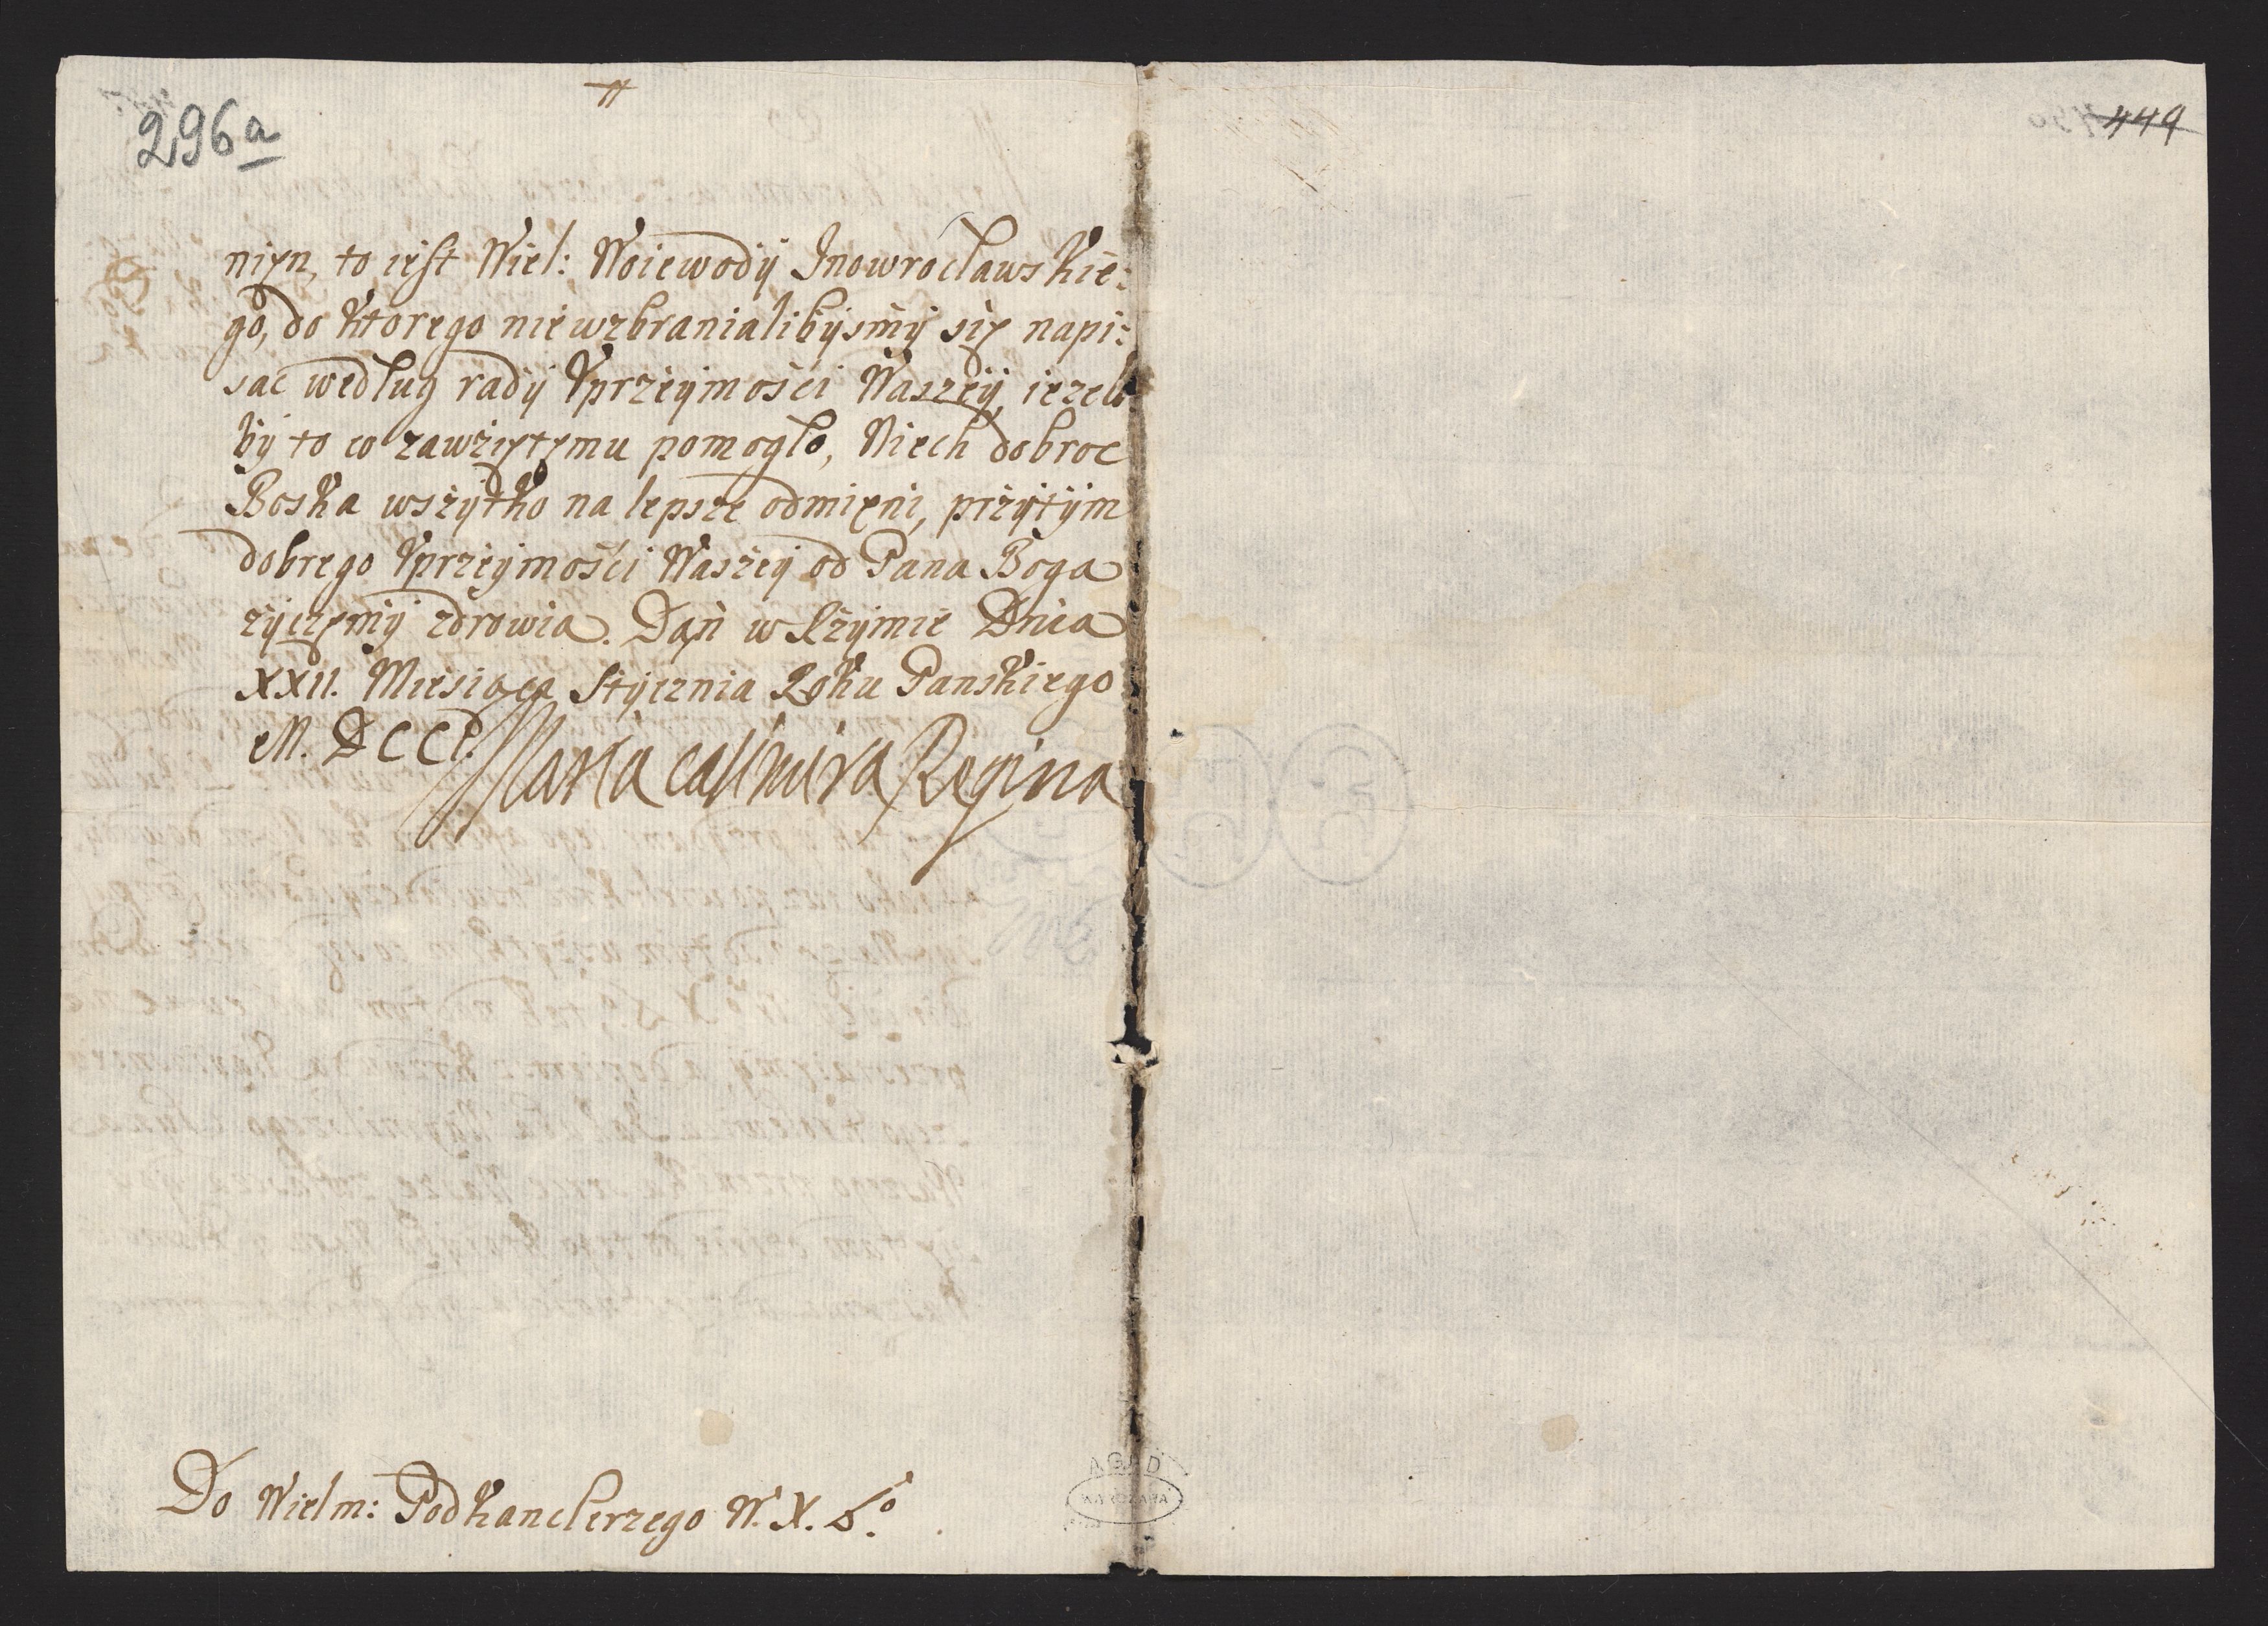 296a
449
nięn, to iest Wiel: Woiewody Inowrocławskie:
go, do ktorego niewzbranialibysmy się napi:
sac według rady Vprzeymości Waszey, iezeli
by to co zawziętęmu pomogło, Niech dobroc
Boska wszytko na lepsze odmięni, przytym
dobrego Vprzeymości Waszey od Pana Boga
życzęmy zdrowia. Dąn w Rzymie Dnia
XXII. Miesiąca Stycznia Roku Panskiego
M. DCCI.
Maria Casimira Regina
Do Wielm: Podkanclerzego W. X. L.º
AGAD
WARSZAWA